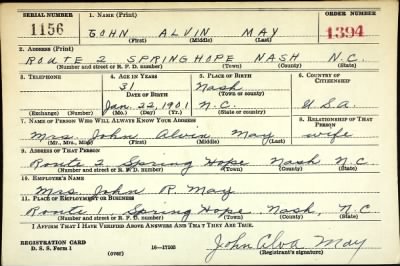 SERIAL NUMBER 1. NAME (Print) ORDER NUMBER
1156 JOHN ALVIN MAY 1394
(First) (Middle) (Last)
2. ADDRESS (Print)
ROUTE 2 SPRING HOPE NASH N.C.
(Number and street or R. F. D. number) (Town) (County) (State)
3. TELEPHONE 4. AGE IN YEARS 5. PLACE OF BIRTH 6. COUNTRY OF CITIZENSHIP
31 Nash
DATE OF BIRTH (Town or county)
Jan. 22, 1901 N.C. U.S.A.
(Exchange) (Number) (Mo.) (Day) (Yr.) (State or country)
7. NAME OF PERSON WHO WILL ALWAYS KNOW YOUR ADDRESS 8. RELATIONSHIP OF THAT PERSON
Mrs. John Alvin May wife
(Mr., Mrs., Miss) (First) (Middle) (Last)
9. ADDRESS OF THAT PERSON
Route 2 Spring Hope Nash N.C.
(Number and street or R. F. D. number) (Town) (County) (State)
10. EMPLOYER'S NAME
Mrs. John R. May
11. PLACE OF EMPLOYMENT OR BUSINESS
Route 1, Spring Hope, Nash, N.C
(Number and street or R. F. D. number) (Town) (County) (State)
I AFFIRM THAT I HAVE VERIFIED ABOVE ANSWERS AND THAT THEY ARE TRUE.
REGISTRATION CARD
D. S. S. Form 1 16-17105 John Alva May
(over) (Registrant's signature)